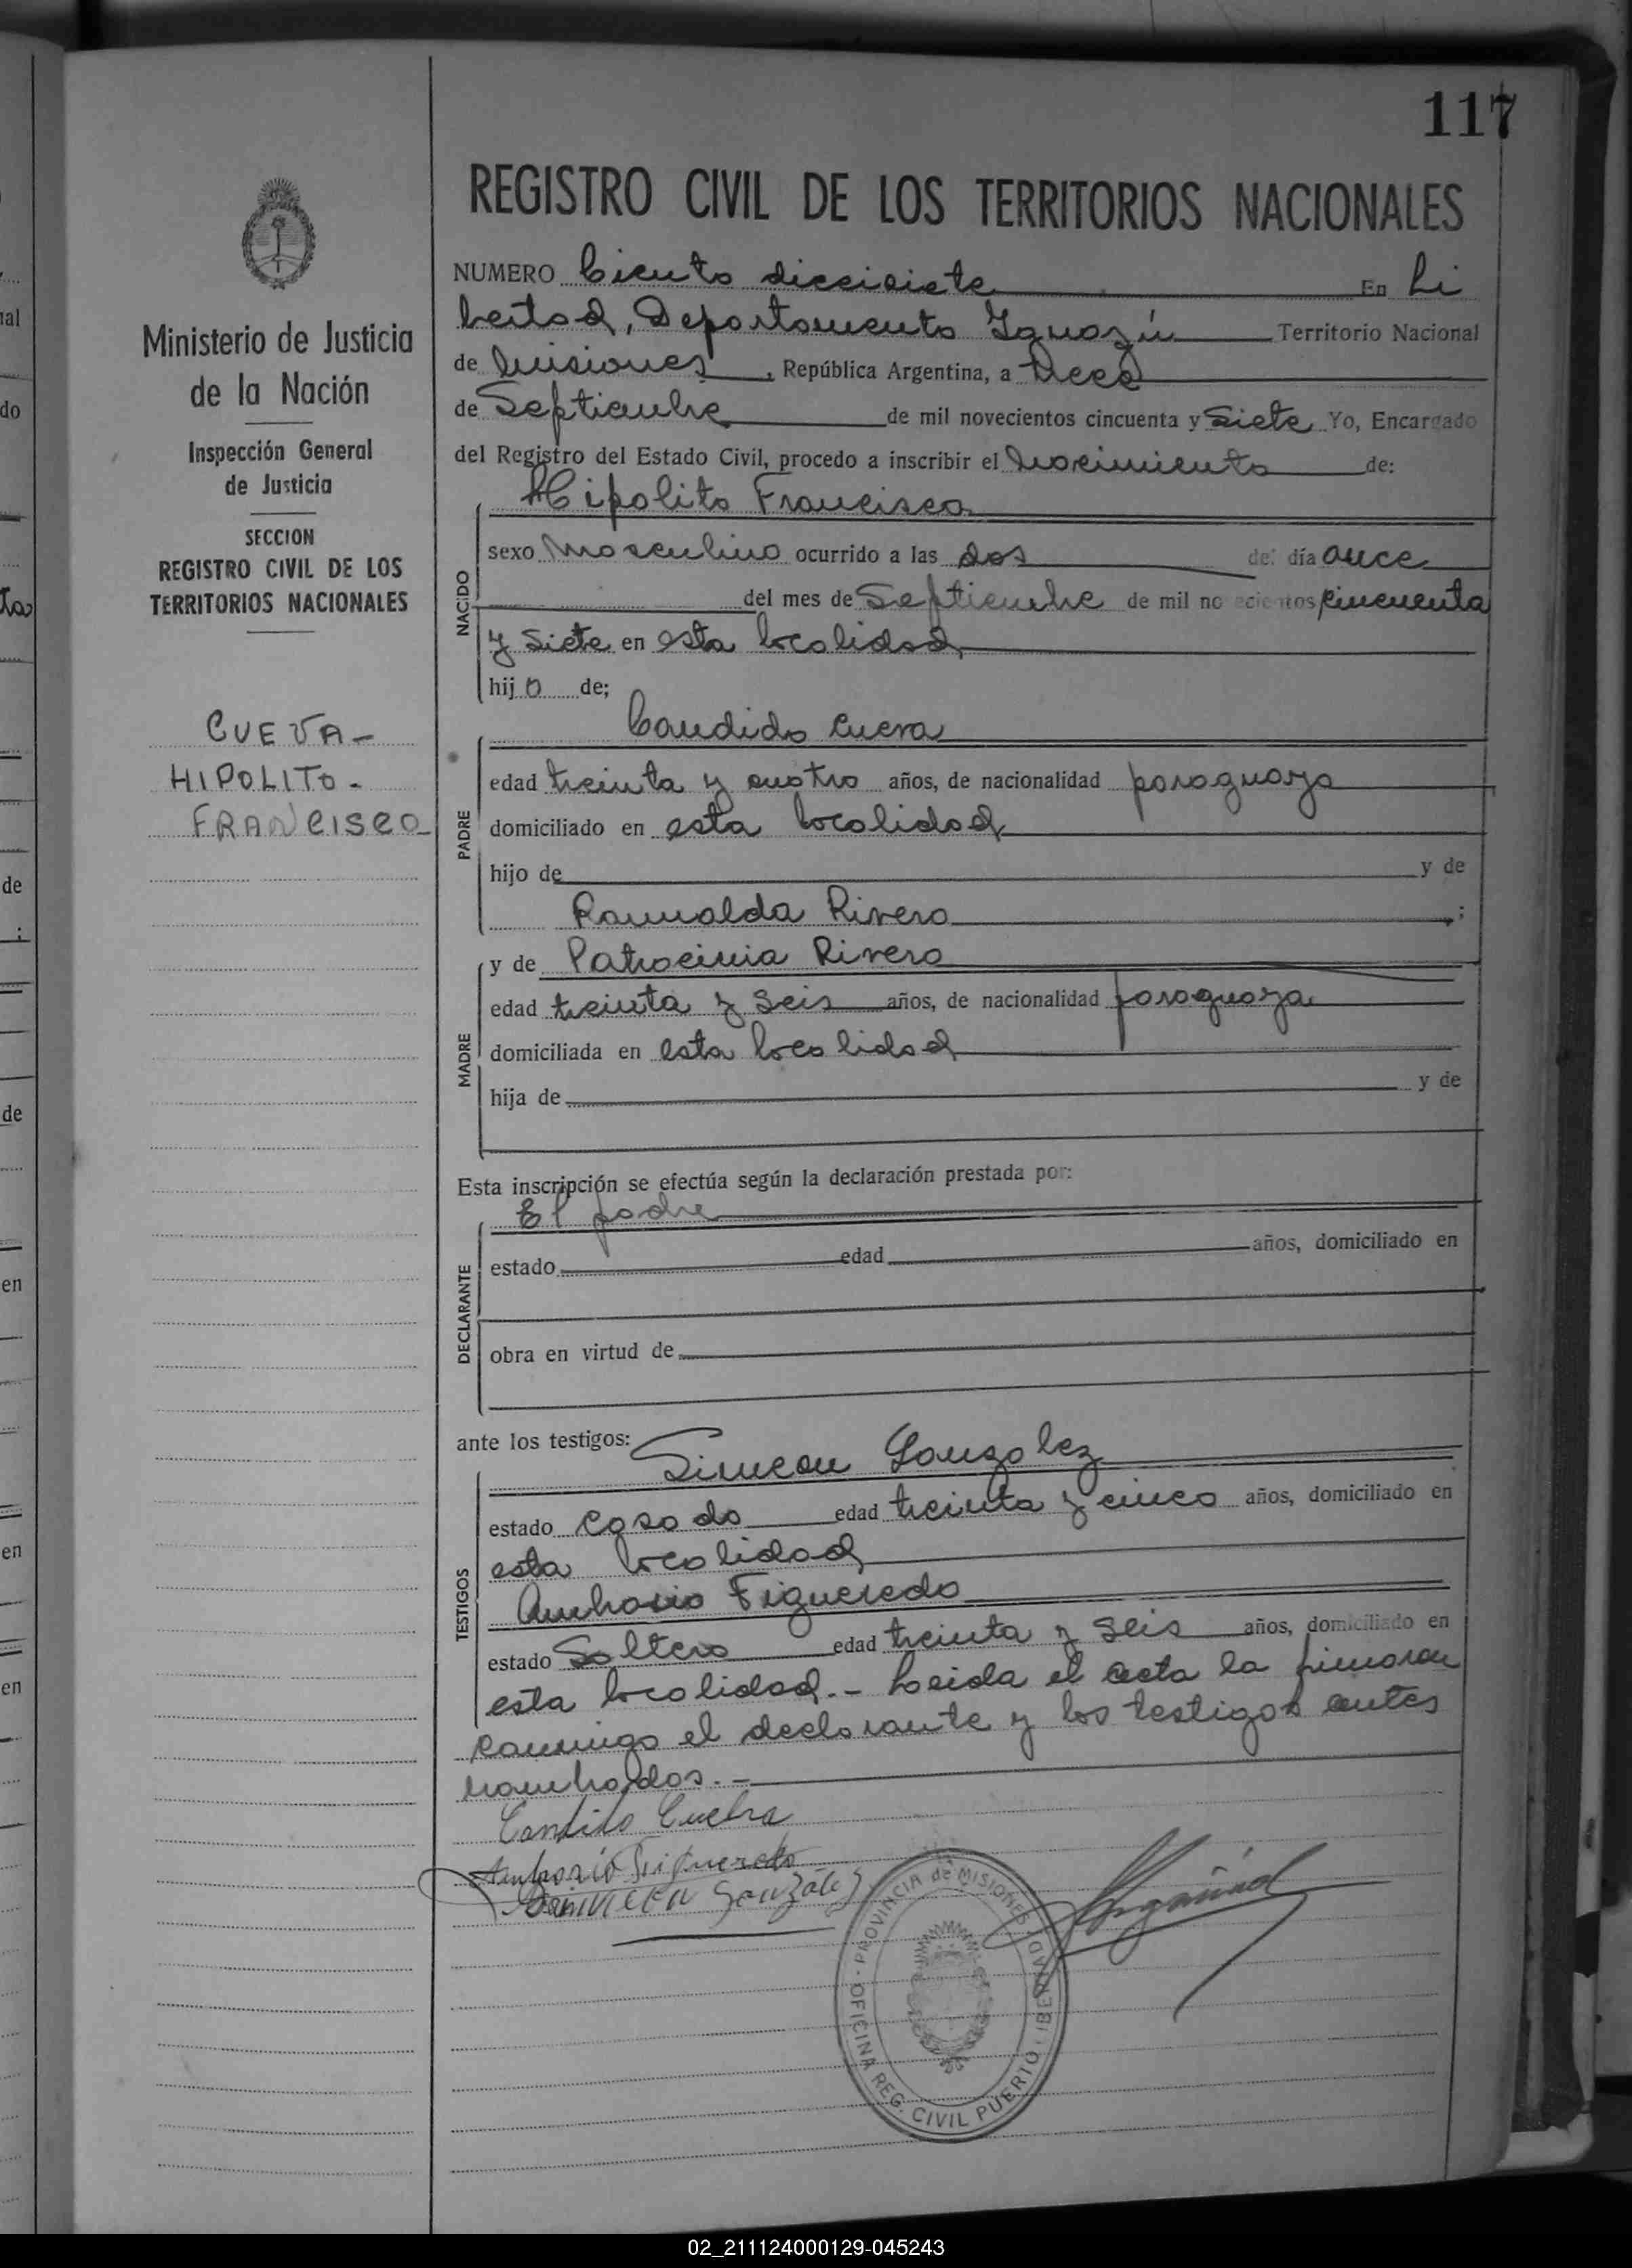 117
REGISTRO CIVIL DE LOS TERRITORIOS NACIONALES
Ministerio de Justicia
de la Nación
Inspección General
de Justicia
SECCION
REGISTRO CIVIL DE LOS
TERRITORIOS NACIONALES
CUEVA-
HIPOLITO-
FRANCISCO
NUMERO Ciento diecisiete En Li
bertad, Departamento Iguazú Territorio Nacional
de Misiones, República Argentina, a trece
de Septiembre de mil novecientos cincuenta y Siete Yo, Encargado
del Registro del Estado Civil, procedo a inscribir el nacimiento de:
NACIDO
Hipolito Francisco
sexo Masculino ocurrido a las dos del día once
del mes de Septiembre de mil novecientos cincuenta
y Siete en esta localidad
hijo de;
PADRE
Candido Cueva
edad treinta y cuatro años, de nacionalidad paraguaya
domiciliado en esta localidad
hijo de y de
Romualda Rivero ;
MADRE
y de Patrocinia Rivero
edad treinta y Seis años, de nacionalidad paraguaya
domiciliada en esta localidad
hija de y de
Esta inscripción se efectúa según la declaración prestada por:
DECLARANTE
El padre
estado edad años, domiciliado en
obra en virtud de
ante los testigos:
TESTIGOS
Simeon Gonzalez
estado casado edad treinta y cinco años, domiciliado en
esta localidad
Ambrosio Figueredo
estado Soltero edad treinta y Seis años, domiciliado en
esta localidad.- Leida el acta la firmaron
conmigo el declarante y los testigos antes
nombrados.-
Candido Cueba
Ambrosio Figueredo
Simeon Gonzalez
PROVINCIA de MISIONES
OFICINA REG. CIVIL PUERTO LIBERTAD
02_211124000129-045243